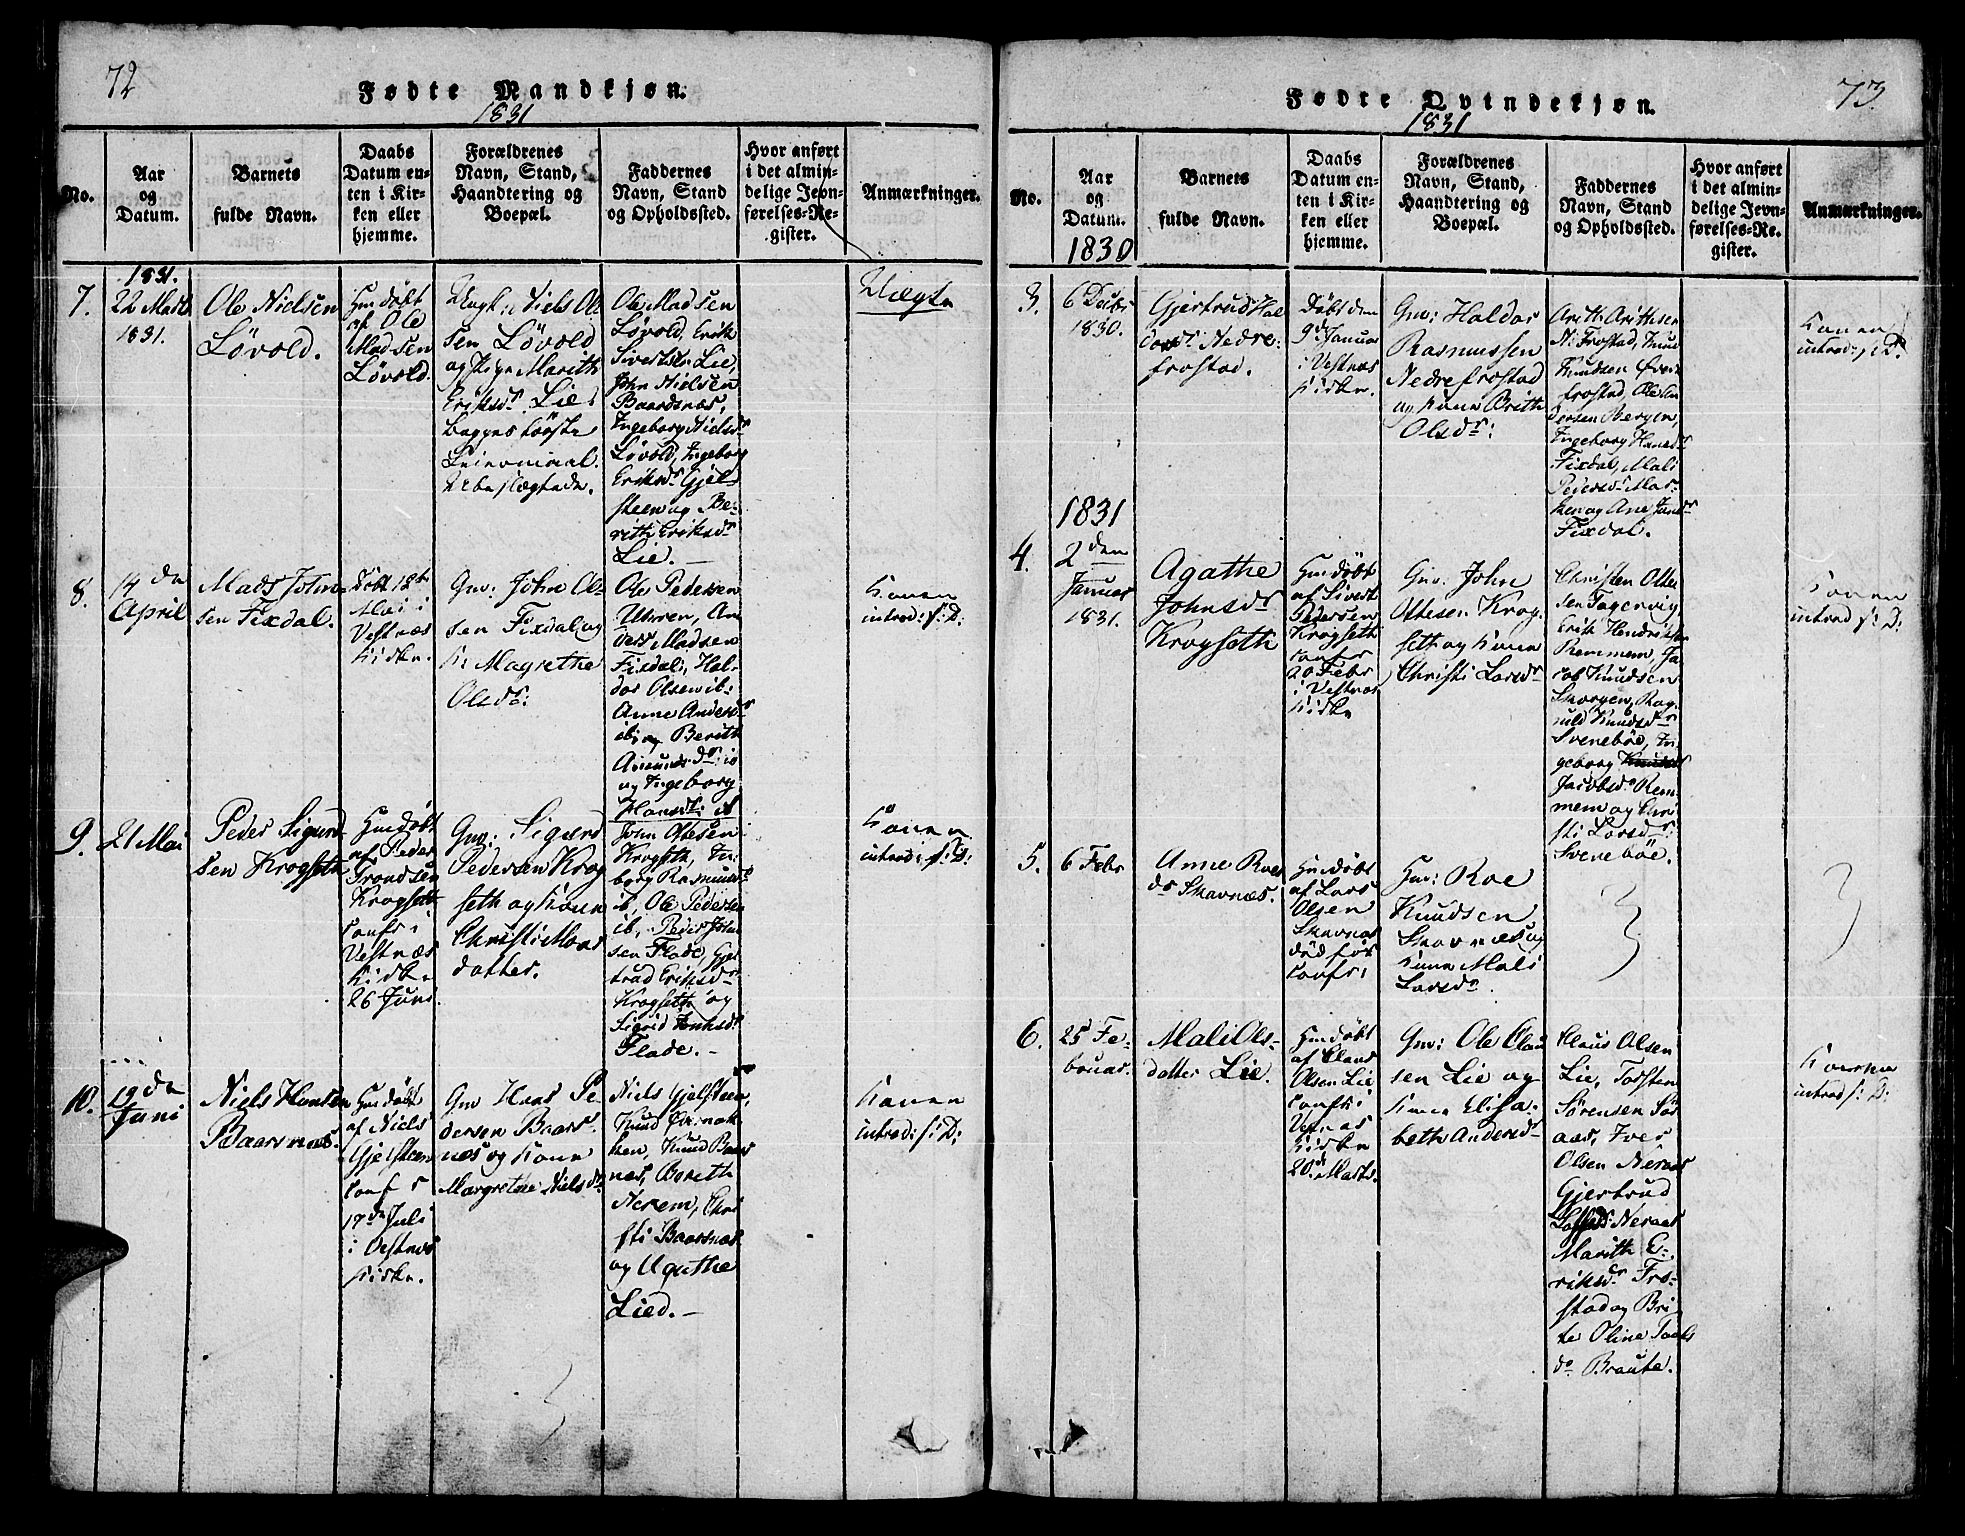 72
Fødte Mandkjøn.
1831
No.
Aar
og
Datum.
Barnets
fulde Navn.
Daabs
Datum en-
ten i Kir-
ken eller
hjemme.
Forældrenes
Navn, Stand,
Haandtering og
Boepæl.
Faddernes
Navn, Stand
og Opholdssted.
Hvor anført
i det almin-
delige Jevn-
førelses-Re-
gister.
Anmærkninger.
1831.
7.
22 Marts
1831.
Ole Nielsen
Lövold.
Hmdöbt
af Ole
Madsen
Lövold.
Ungk: Niels Ol
sen Lövold
og Pige Marith
Eriksdr Lie.
begges første
Leiermaal.
Ubeslægtede.
Ole Madsen
Lövold, Erik
Sivertsen Lie,
John Nielsen
Baardsnæs,
Ingeborg Nielsdr
Lövold, Ingeborg
Eriksdr Gjel-
steen og Be-
rith Eriksdr
Lie.
Uægte
8.
14 de
April
Mads John-
sen Fixdal.
Döbt 12te
Mai i
Vestnæs
Kirke.
Gm: John Ol-
sen Fixdal og
K: Magrethe
Olsdr:
Ole Pedersen
Uhren, An-
ders Madsen
Fixdal, Hal-
dor Olsen ib:
Anne Andersdr
ib: og Berith
Amundsdr: ib
og Ingeborg
Hansd: ib
Konen
introd: s: D:
9.
21 Mai
Peder Sigurd-
sen Krogseth
Hmdöbt
af Peder
Trondsen
Krogseth
confr i
Vestnæs
Kirke
26 Juni
Gm: Sigurd
Pedersen Krog
seth og Kone
Christi Mons
datter.
John Ottesen
Krogseth, In-
borg Rasmusdr
ib, Ole Pedersen
ib, Peder John
sen Flade, Gjer
trud Eriksdr
Krogseth og
Sigrid
Flade.
Konen
introd: s: D:
10.
19 de
Juni
Niels Hansen
Baarsnæs.
Hmdöbt
af Niels
Gjelsteen
conf r
17de Juli
i Vestnæs
Kirke.
Gm Hans Pe
dersen Baars-
næs og Kone
Margrethe Nielsdr
Niels Gjelsteen,
Knud
Knud Baars
næs, Berith
Nerem, Chri
sti Baarsnæs
og Agathe
Lied.
Konen
introd: s: D:
73.
Fødte Qvindekjøn.
1831
No.
Aar
og
Datum.
Barnets
fulde Navn.
Daabs
Datum en-
ten i Kir-
ken eller
hjemme.
Forældrenes
Navn, Stand,
Haandtering og
Boepæl.
Faddernes
Navn, Stand
og Opholdssted.
Hvor anført
i det almin-
delige Jevn-
førelses-Re-
gister.
Anmærkninger.
1830
3.
6 Decbr
1830.
Gjertrud Hal
dorsdr Nedre-
frostad.
Döbt den
9de Januar
i Vestnæs
Kirke.
Gm: Haldor
Rasmussen
Nedrefrostad
og Kone Brith
Olsdr:
N: Frostad, Knud
Knudsen Øver
frostad, Ole An
dersen Bergen,
Ingeborg Hansdr
Fixdal, Mali
Pedersdr
og Ane
Fixdal.
Konen
introd: s: D:
1831
4.
2 den
Januar
1831.
Agathe
Johnsdr
Krogseth
Hmdöbt
af Sivert
Pedersen
Krogseth
confr
20 Febr
i Vestnæs
Kirke
Gm: John
Ottesen Krog
seth og Kone
Christi Larsdr
Christen Otte
sen Fagervig
Erik Hendriksen
Remmem, Ja
cob Knudsen
Skorgen, Rag
nild Knudsdr
Svenebøe, In
geborg
Jacobsdr Rem
mem og Chri
sti Larsdr:
Svenebøe.
Konen
introd s: D:
5.
6 Febr
Anne Roes
dr Skavnæs.
Hmdöbt
af Lars
Olsen
Skavnæs
död før
confr:
Gm: Roe
Knudsen
Skavnæs og
Kone Mali
Larsdr.
6.
25 Fe-
bruar.
Mali Ols-
datter Lie.
Hmdöbt
af Claus
Olsen Lie
confr i
Vestnæs
Kirke
20de Marts.
Gm: Ole Clau
sen Lie og
Kone Elisa-
beth Andersdr
Claus Olsen
Lie, Torsten
Sörensen Sör
aas, Iver
Olsen Neraas
Gjertrud
Neraas
Marith E-
riksdr Fro-
stad og Bri-
te Oline
dr Braute.
Konen
introd s: D: